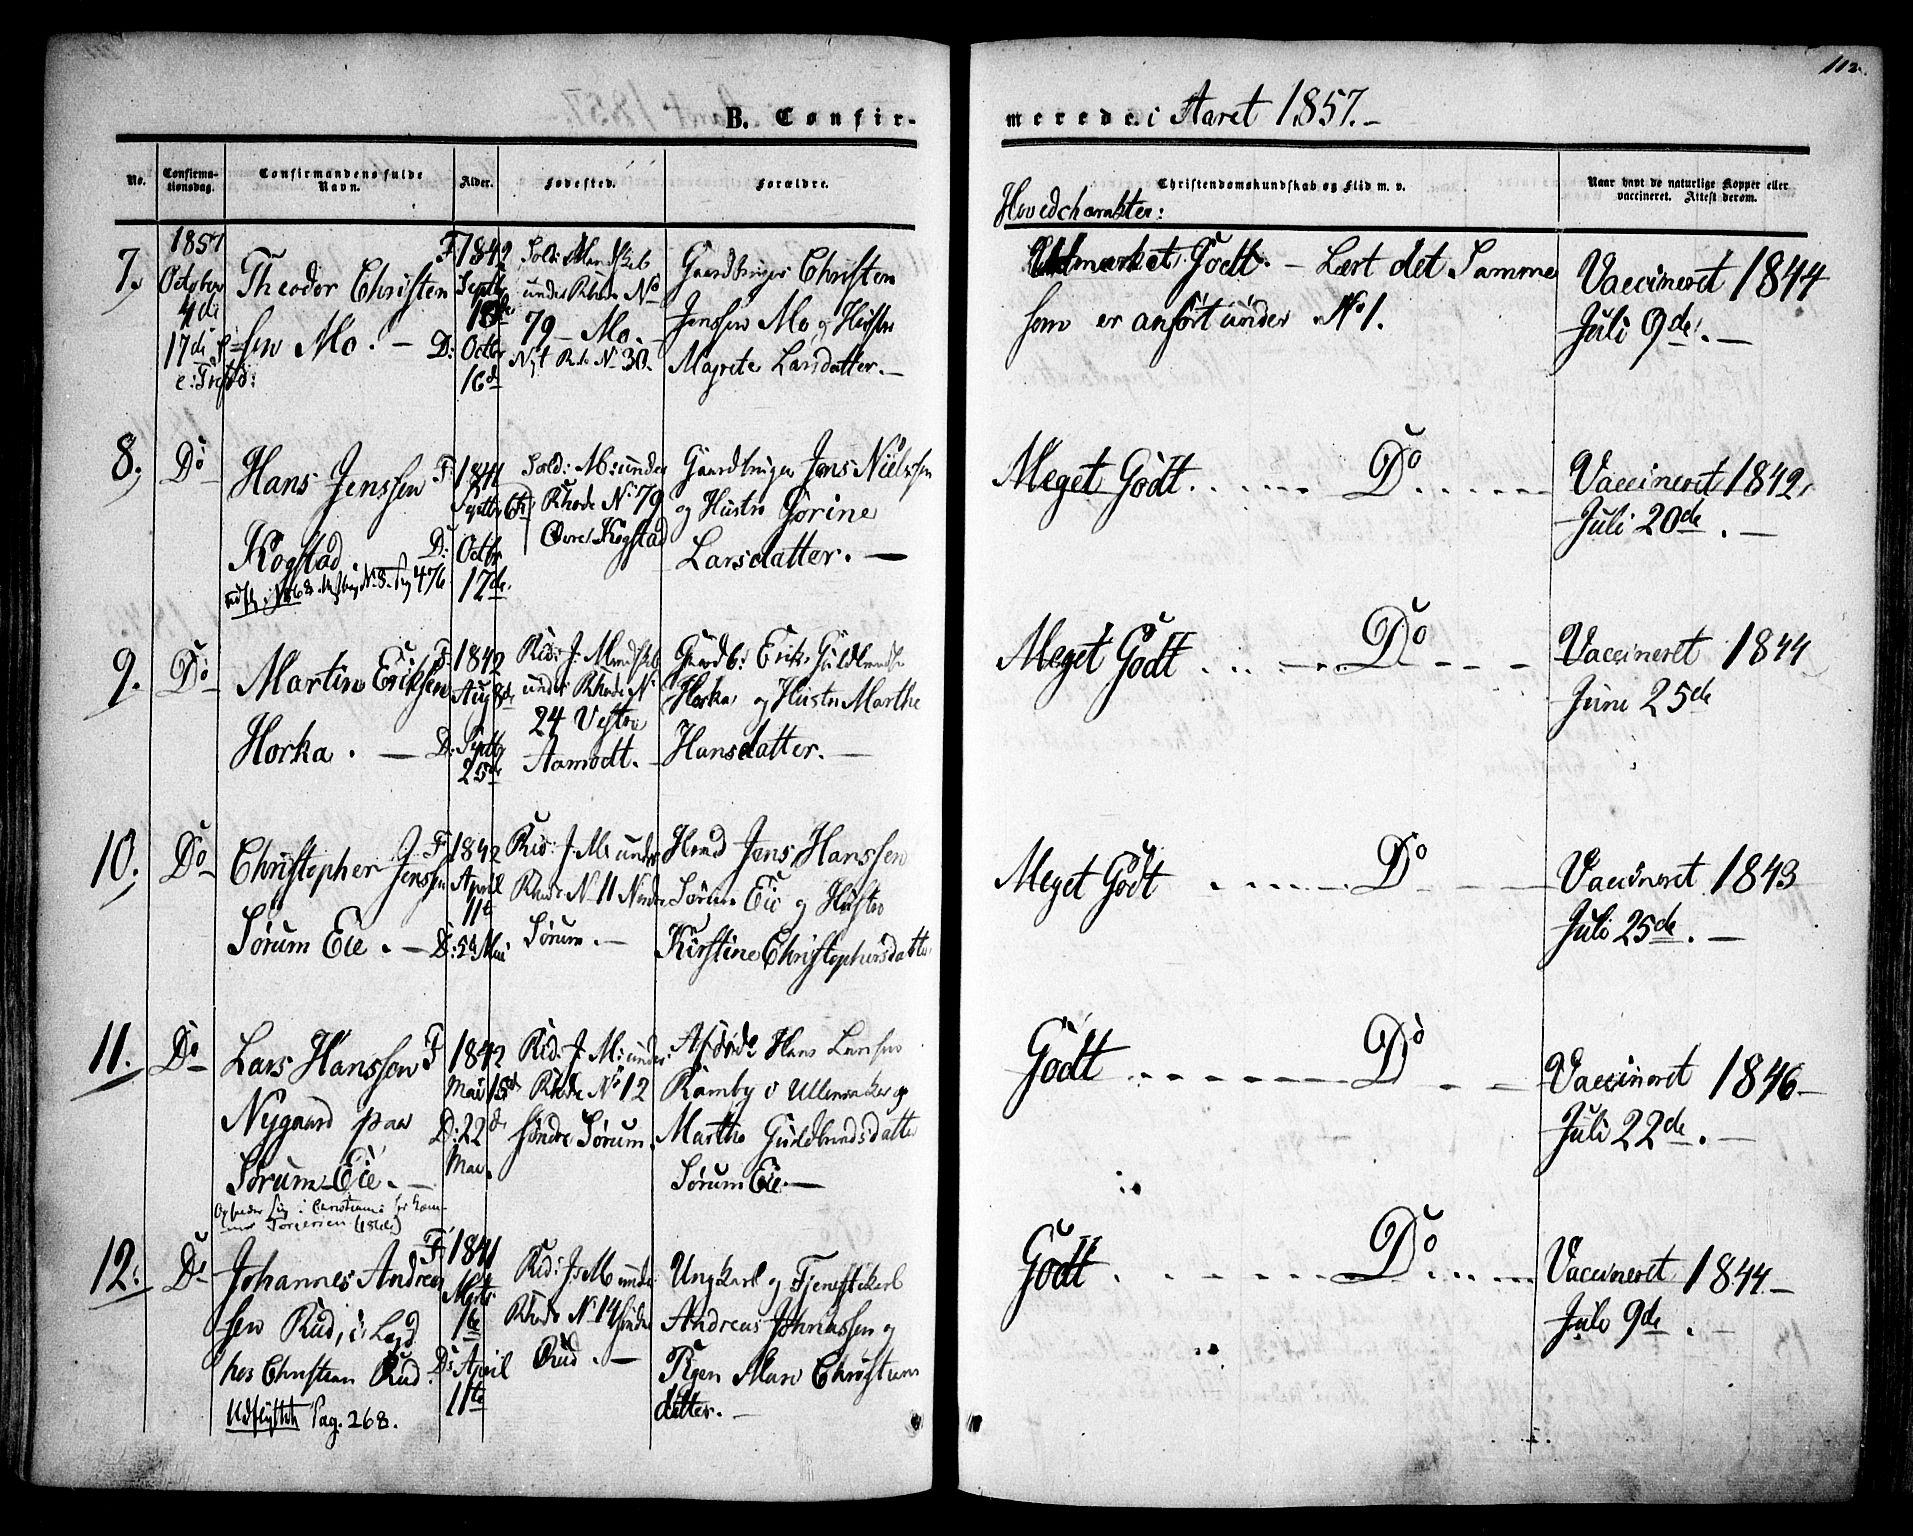 112.
B. Confir-
merede i Aaret 1857.-
No.
Confirma-
tionsdag.
Confirmandens fulde
Navn.
Alder.
Fødested.
Forældre.
Christendomskundskab og Flid m. v.
Naar havt de naturlige Kopper eller
vaccineret. Attest derom.
Hovedcharakter:
7.
1857
October
4de
17de
Theodor Christen
sen Mo. -
F. 1842
Septbr
18de
D: Octbr
16de
under Rhode No
79 - Mo. -
No 30.
Gaardbruger Christen
Jenssen Mo og Hustro
Magrete Larsdatter. -
Udmærket Godt. - Lært det Samme
som er anført under No 1.
Vaccineret 1844
Juli 9de. -
8.
Do
Hans Jenssen
Kogstad.
No 8. Pag 476
F. 1841
Septbr 6te
D: Octbr
17de.
Sold: M: under
Rhode No 79
Øvre Kogstad
Gaardbruger Jens Nielssen
og Hustro Gorine
Larsdatter. -
Meget Godt. Do
Vaccineret 1842,
Juli 20de. -
9.
Do
Martin Eriksen
Horka. -
F. 1842
Aug 8de
D: Septbr
25de
Rid: J: Mandskab
under Rhode No
24 Vestre
Aamodt. -
Gaardb: Erik Guldbrands:
Horka og Hustro Marthe
Hansdatter. -
Meget Godt Do
Vaccineret 1844
Juni 25de
10.
Do
Christopher Jenssen
Sørum Eie. -
F. 1842
April
11te
D: 5te Mai
Rid: J: M: under
Rhode No 11 Nordre
Sørum. -
Jens Hanssen
Sørum Eie og Hustro
Kirstine Christophersdatter
Meget Godt Do
Vaccineret 1843
Juli 25de. -
11.
Do
Lars Hanssen
Nygaard paa
Sørum Eie. -
i Christiania
Torgersen
F 1842
Mai 15de
D: 22de
Mai.
Rid: J: M: under
Rhode No 12
Søndre Sørum.
Hans Larsen
Ramby Ullensaker og
Marthe Guldbrandsdatter
Sørum Eie. -
Godt Do
Vaccineret 1846 -
Juli 22de. -
12.
Do
Johannes Andrea
sen Rud, i Legd
hos Christian Rud.
Udflyttet Pag. 268.
F. 1841
Marts
16de
D: April
11te
Rid: J: M under
Rhode No 14 Søndre
Rud. -
Ungkarl og Tjenestekarl
Andreas Johnassen og
Pigen Mari Christians
datter. -
Godt Do
Vaccineret 1844 -
Juli 9de. -